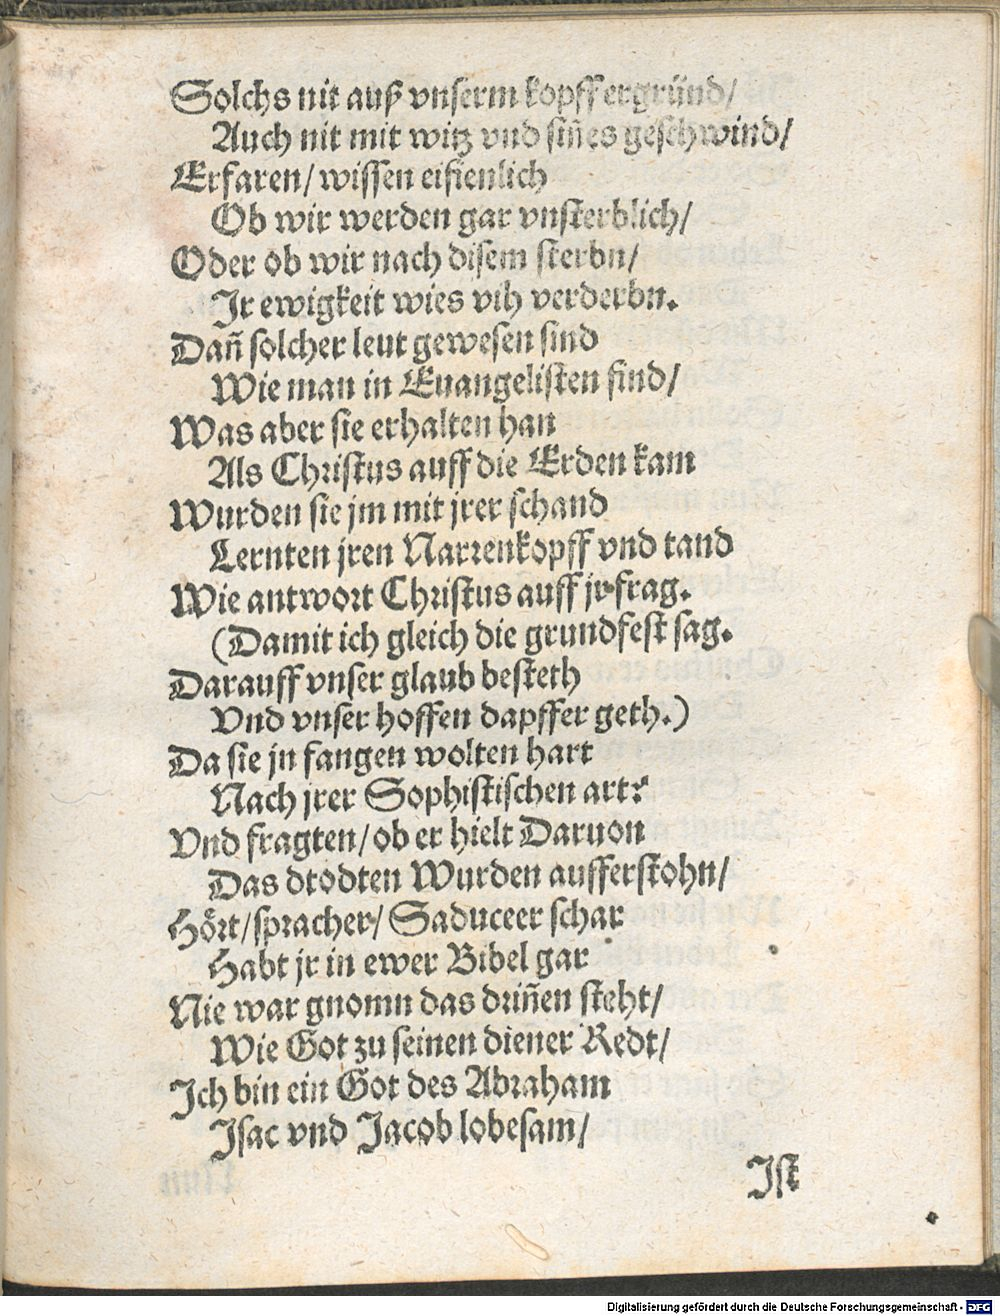 Solchs nit auß vnserm kopff ergründ/
Auch nit mit witz vnd siñes geschwind/
Erfaren/ wissen eifienlich
Ob wir werden gar vnsterblich/
Oder ob wir nach disem sterbn/
Ir ewigkeit wies vih verderbn.
Dañ solcher leut gewesen sind
Wie man in Euangelisten find/
Was aber sie erhalten han
Als Christus auff die Erden kam
Wurden sie jm mit jrer schand
Lernten jren Narrenkopff vnd tand
Wie antwort Christus auff jr frag.
(Damit ich gleich die grundfest sag.
Darauff vnser glaub besteth
Vnd vnser hoffen dapffer geth.)
Da sie jn fangen wolten hart
Nach jrer Sophistischen art?
Vnd fragten/ ob er hielt Daruon
Das dtodten Wurden aufferstohn/
Hört/ sprach er/ Saduceer schar
Habt jr in ewer Bibel gar
Nie war gnomn das driñen steht/
Wie Got zu seinen diener Redt/
Ich bin ein Got des Abraham
Isac vnd Jacob lobesam/
Ist
Digitalisierung gefördert durch die Deutsche Forschungsgemeinschaft - DFG